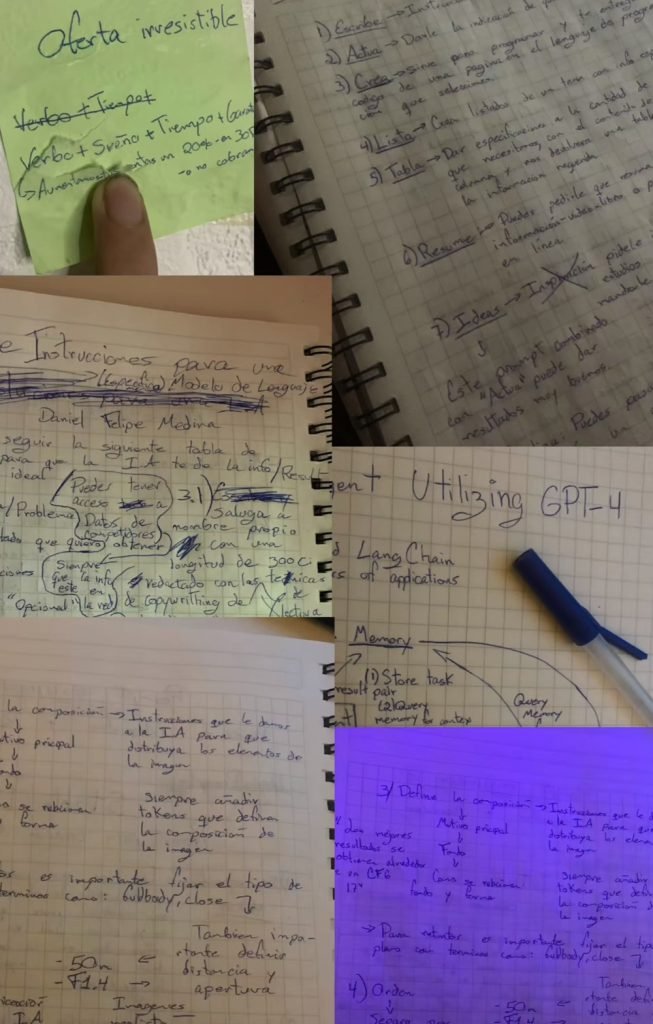 Oferta irresistible
Verbo + Tiempo +
Verbo + Sueño + Tiempo +
en un 20% en 30
o no cobran
1) Escribe →
2) Actua → Darle la indicación de
3) Crea → Sirve para programar y te entrega
codigo de una pagina en el lenguage de progra
que seleccionen
4) Lista → Crea listados de un tema con info
5) Tabla → Dar especificaciones a la cantidad de
que necesitamos con el contenido de
columnas y nos devolvera una tabla
la información requerida
6) Resume → Puedes pedirle que resuma
información-video-libro o p
en línea
7) Ideas → Inspiración pidele
↓ estudios
mandarle
Este prompt combinado
con "Actua" puede dar
resultados muy buenos.
Puedes
e Instrucciones para una
(especifica) Modelo de Lenguaje
para una IA
Daniel Felipe Medina
seguir la siguiente tabla de
para que la IA te de la info/Result
ideal
Puedes tener
acceso a
Datos de
competidores
3.1)
Saluga a
nombre propio
con una
longitud de 300 C
/Problema
tado que quiero obtener
Siempre
que la info
este en
la red
redactado con las tecnicas
de copywrithing de
"Opcional"
ciones
gent Utilizing GPT-4
d LangChain
es of applications
Memory
(1) Store task
result pair
(2) Query
memory for context
Query
Memory
la composición → Instrucciones que le damos
↓ a la IA para que
motivo pricipal distribuya los elementos de
↓ la imagen
Fondo
↓
Como se relacionan
fondo y forma
Siempre añadir
tokens que definan
la composición de
la imagen
es importante fijar el tipo de
terminos como: fullbody, close
Tambien impo-
-50m ← rtante definir
distancia y
-F1.4 → apertura
Imagenes
IA
3) Define la composición → Instrucciones que le d
↓ a la IA para que
Motivo pricipal distribuya los eleme
↓ la imagen
dan mejores
resultados se
obtienen alrededor
de un CFG
17"
Fondo
↓
Como se relacionan
fondo y forma
Siempre añadir
tokens que defin
la composición d
la imagen
→ Para retratos es importante fijar el tipo
plano con terminos como: fullbody, close
Tambien
-50m ← rtante defini
distancia
-F1.4 →
4) Orden
↓
Separa